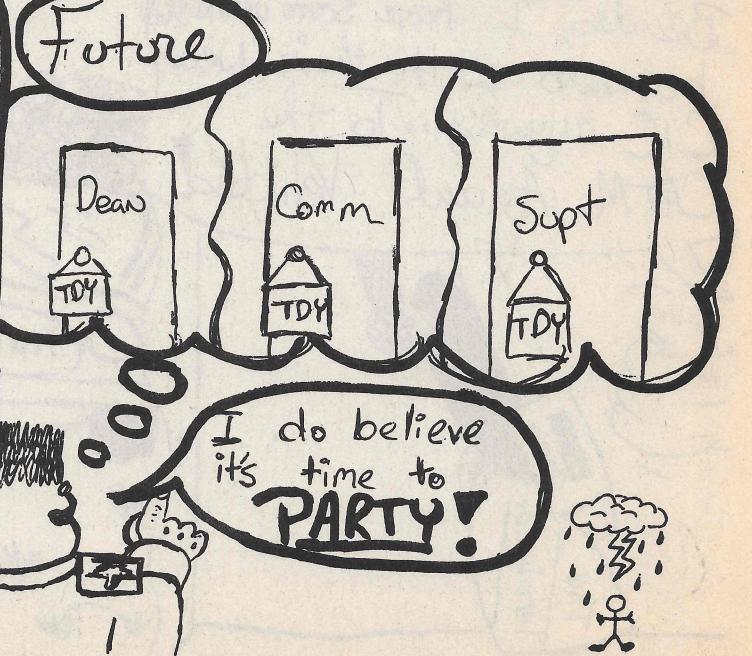 Future
Dean
TDY
Comm
TDY
Supt
TDY
I do believe
it's time to
PARTY!